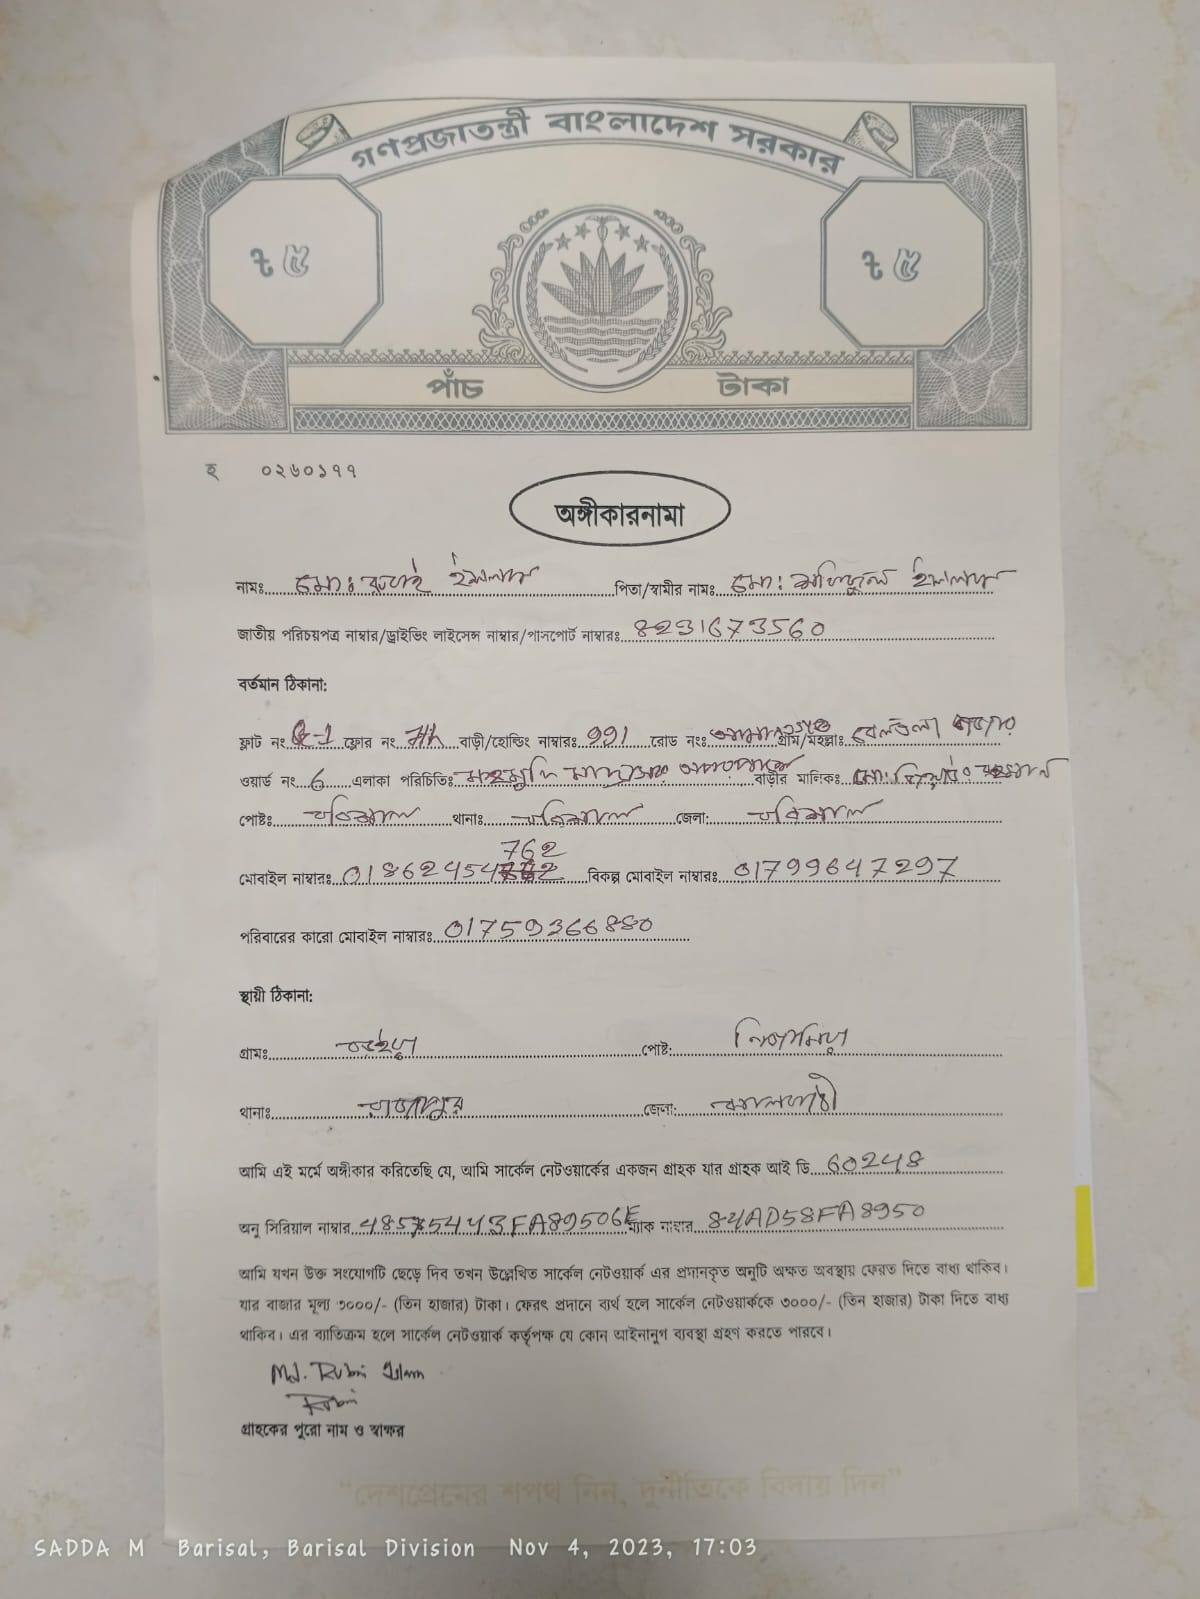 গণপ্রজাতন্ত্রী বাংলাদেশ সরকার
ট ৫ ট ৫
পাঁচ টাকা
হ ০২৬০১৭৭
অঙ্গীকারনামা
নামঃ মোঃ ইসলাম পিতা/স্বামীর নামঃ মোঃ ইসলাম
জাতীয় পরিচয়পত্র নাম্বার/ড্রাইভিং লাইসেন্স নাম্বার/পাসপোর্ট নাম্বারঃ 8231673560
বর্তমান ঠিকানা:
ফ্লাট নং ফ্লোর নং 7th বাড়ী/হোল্ডিং নাম্বারঃ 991 রোড নংঃ গ্রাম/মহল্লাঃ বেলতলা বাজার
ওয়ার্ড নং 6 এলাকা পরিচিতিঃ বাড়ীর মালিকঃ মোঃ
পোষ্টঃ বরিশাল থানাঃ বরিশাল জেলা: বরিশাল
762
মোবাইল নাম্বারঃ 01862454 বিকল্প মোবাইল নাম্বারঃ 01799647297
পরিবারের কারো মোবাইল নাম্বারঃ 01759366880
স্থায়ী ঠিকানা:
গ্রামঃ পোষ্ট:
থানাঃ রাজাপুর জেলা: ঝালকাঠী
আমি এই মর্মে অঙ্গীকার করিতেছি যে, আমি সার্কেল নেটওয়ার্কের একজন গ্রাহক যার গ্রাহক আই ডি 60248
অনু সিরিয়াল নাম্বার 48575443FA89506E ম্যাক নাম্বার 84AD58FA8950
আমি যখন উক্ত সংযোগটি ছেড়ে দিব তখন উল্লেখিত সার্কেল নেটওয়ার্ক এর প্রদানকৃত অনুটি অক্ষত অবস্থায় ফেরত দিতে বাধ্য থাকিব।
যার বাজার মূল্য ৩০০০/- (তিন হাজার) টাকা। ফেরৎ প্রদানে ব্যর্থ হলে সার্কেল নেটওয়ার্ককে ৩০০০/- (তিন হাজার) টাকা দিতে বাধ্য
থাকিব। এর ব্যতিক্রম হলে সার্কেল নেটওয়ার্ক কর্তৃপক্ষ যে কোন আইনানুগ ব্যবস্থা গ্রহণ করতে পারবে।
Md. Rubi Islam
Rubi
গ্রাহকের পুরো নাম ও স্বাক্ষর
"দেশপ্রেমের শপথ নিন, দুর্নীতিকে বিদায় দিন"
SADDA M Barisal, Barisal Division Nov 4, 2023, 17:03